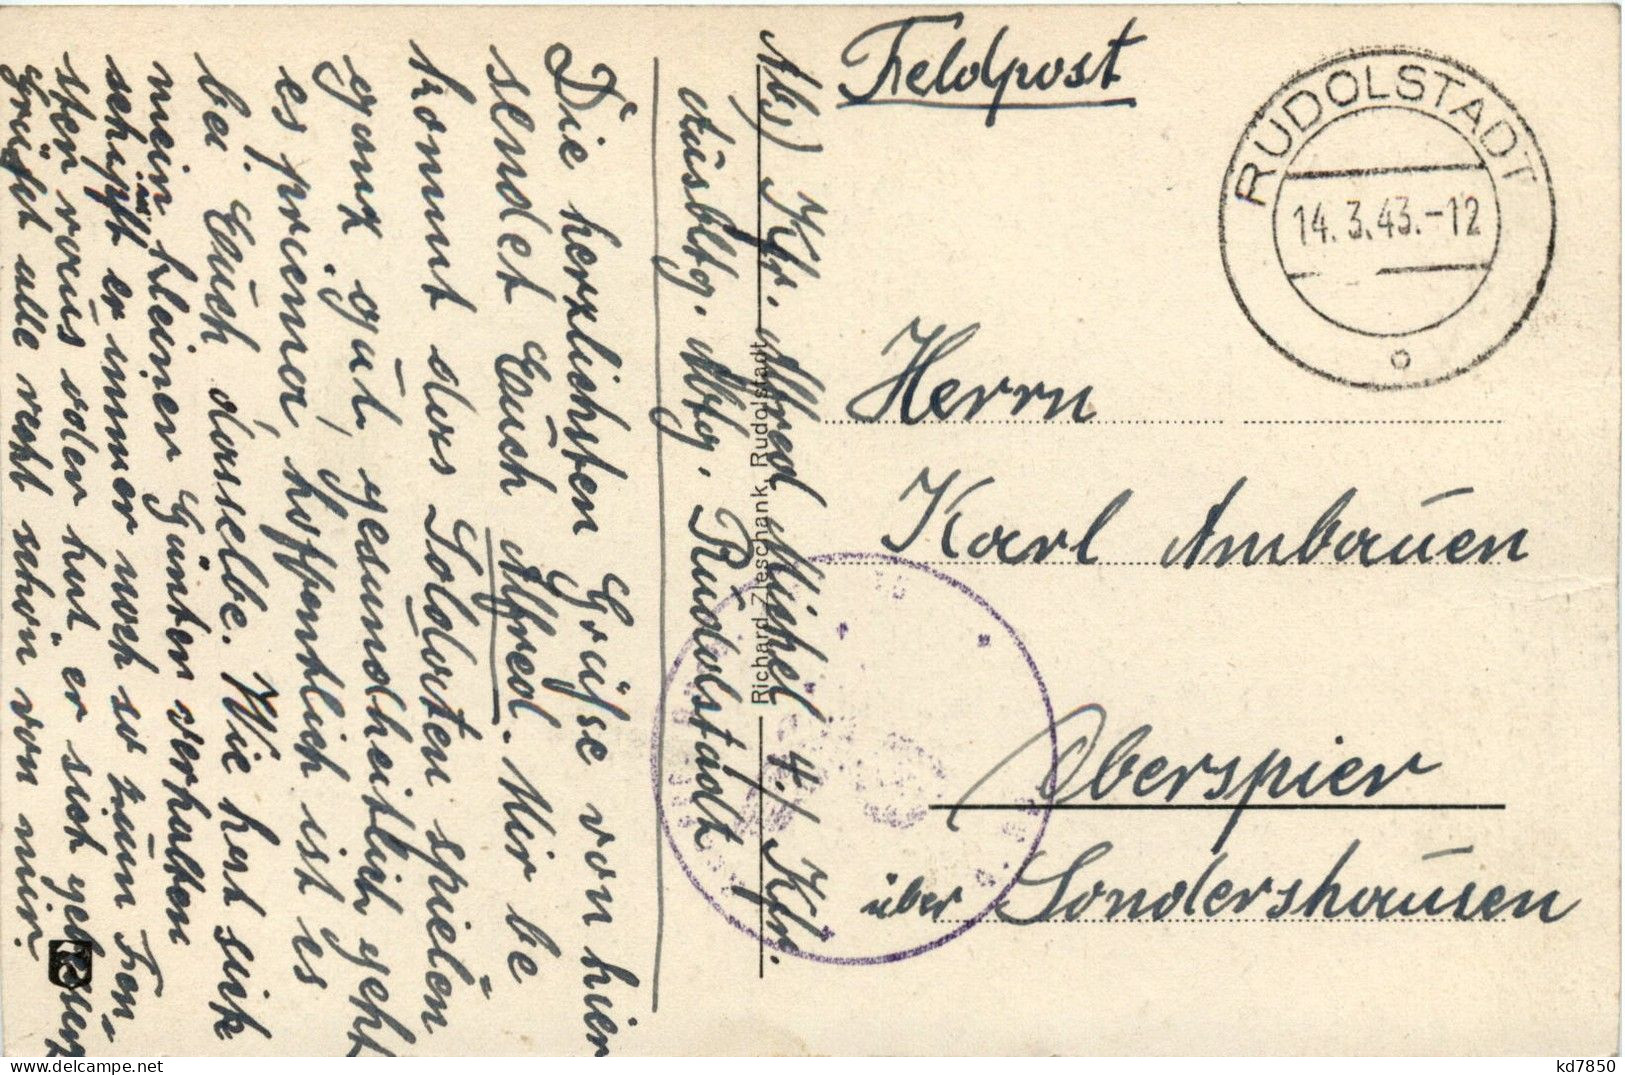 Feldpost
RUDOLSTADT
14.3.43.-12
Herrn
Karl Ambauen
Oberspier
über Sondershausen
Abs) Kfr. Alfred Michel 4./ Kfr.
Ausbltg. Abtg. Rudolstadt
Richard Zieschank, Rudolstadt
Die herzlichsten Grüsse von hier
sendet Euch Alfred. Mir be
kommt das Soldaten spielen
ganz gut, gesundheitlich geht
es priema, hoffentlich ist es
bei Euch dasselbe. Wie hat sich
mein kleiner Günter verhalten
schipft er immer noch so zum Fen-
ster raus oder hat er sich
Grüset alle recht schön von mir.
kd7850